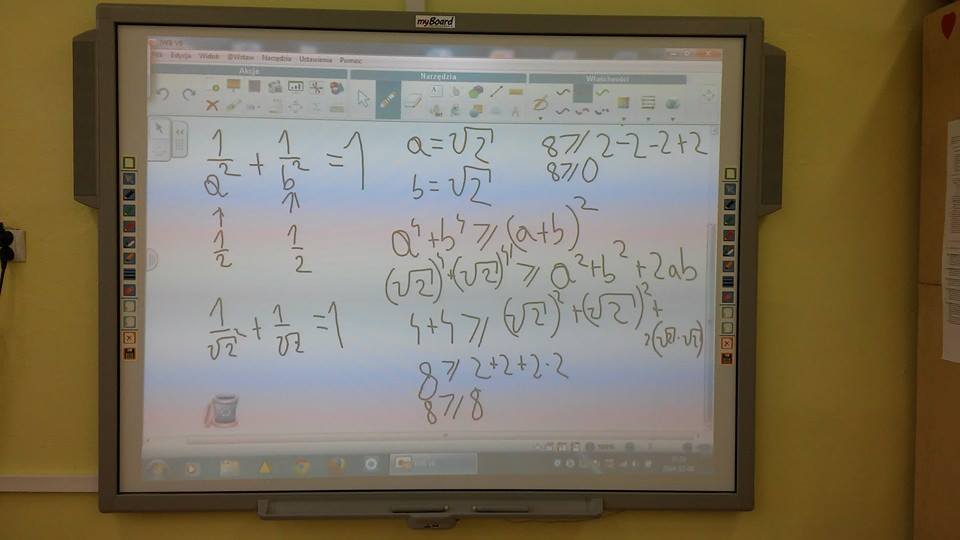 myBoard
Edycja Widok @Wstaw Narzędzia Ustawienia Pomoc
Akcje Narzędzia Właściwości
1/a² + 1/b² = 1
↑ ↑
1/2 1/2
1/√2² + 1/√2 = 1
a = √2
b = √2
a⁴ + b⁴ ⩾ (a+b)²
(√2)⁴ + (√2)⁴ ⩾ a² + b² + 2ab
4+4 ⩾ (√2)² + (√2)² +
2(√2·√2)
8 ⩾ 2+2+2·2
8 ⩾ 8
8 ⩾ 2-2-2+2
8 ⩾ 0